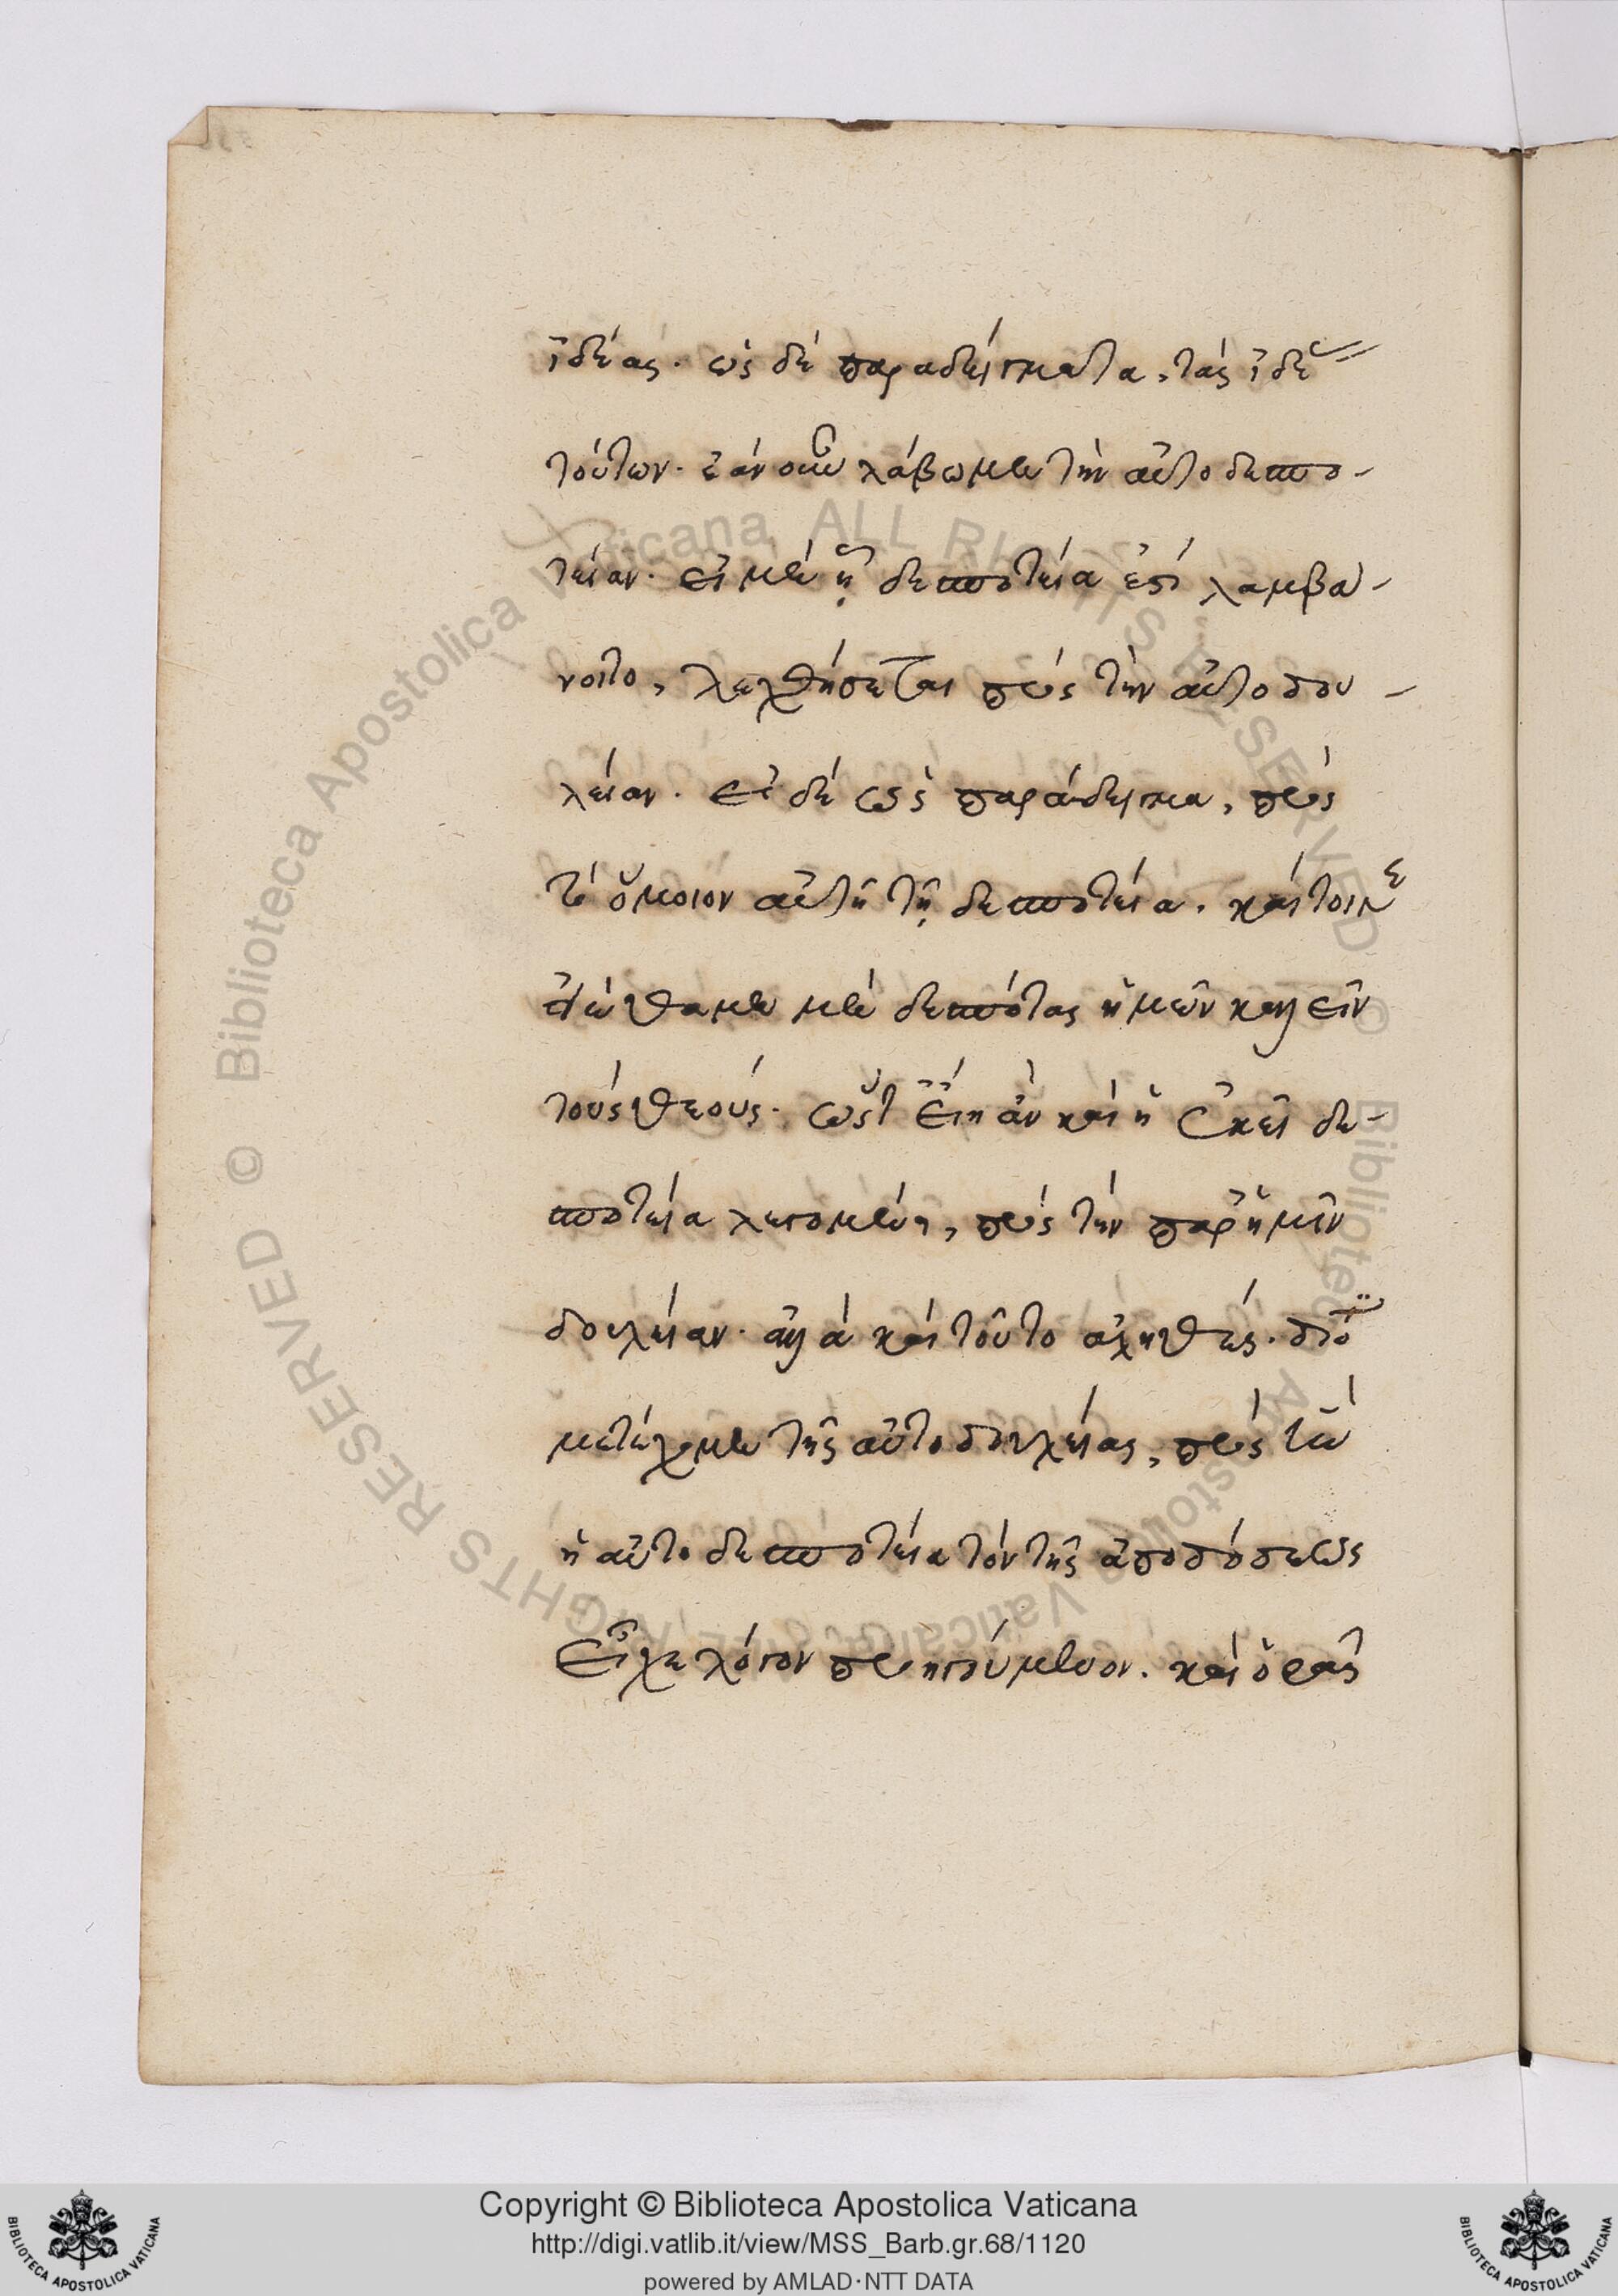 ἰδέας. ὡς δὲ παραδείγματα, τὰς ἰδέας
τούτων. ἐὰν οὖν λάβωμεν τὴν αὐτοδεσπο-
τείαν. εἰ μὲν ᾗ δεσποτεία ἐστὶ λαμβά-
νοιτο, λεχθήσεται πρὸς τὴν αὐτοδου-
λείαν. εἰ δὲ ὡς παράδειγμα, πρὸς
τὸ ὅμοιον αὐτῇ τῇ δεσποτείᾳ. καίτοι γε
εἰώθαμεν μὲν δεσπότας ἡμῶν καλεῖν
τοὺς θεούς. ὥστ' εἴη ἂν καὶ ἡ ἐκεῖ δε-
σποτεία λεγομένη, πρὸς τὴν παρ' ἡμῖν
δουλείαν. ἀλλὰ καὶ τοῦτο ἀληθές. διότι
μετέχομεν τῆς αὐτοδουλείας, πρὸς ἣν
ἡ αὐτοδεσποτεία τὸν τῆς ἀποδόσεως
εἶχε λόγον προηγούμενον. καὶ ὁρᾷς
Biblioteca Apostolica Vaticana ALL RIGHTS RESERVED ©
Biblioteca Apostolica Vaticana ALL RIGHTS RESERVED ©
Copyright © Biblioteca Apostolica Vaticana
http://digi.vatlib.it/view/MSS_Barb.gr.68/1120
powered by AMLAD·NTT DATA
BIBLIOTECA APOSTOLICA VATICANA
BIBLIOTECA APOSTOLICA VATICANA